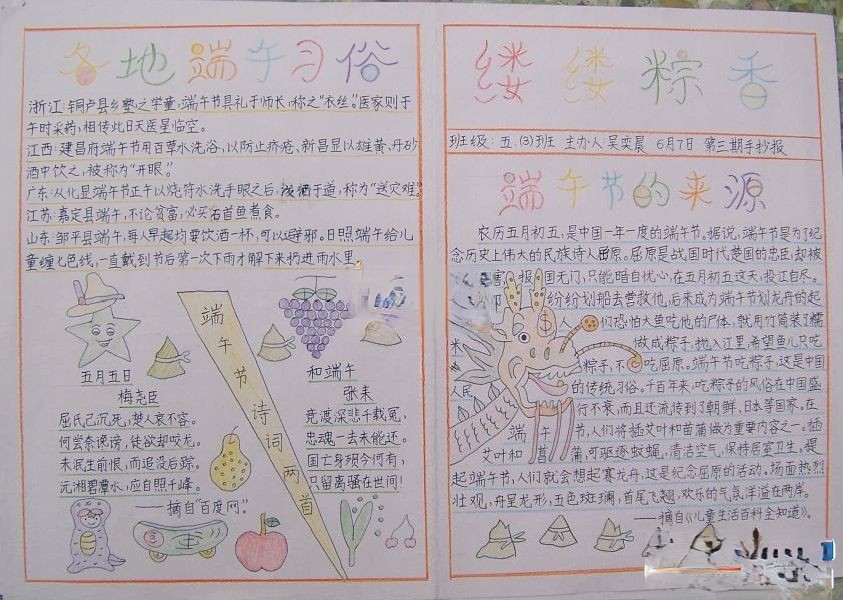 各地端午习俗
浙江:铜卢县乡塾之学童,端午节具礼于师长,称之“衣丝。”医家则于
午时采药,相传此日天医星临空。
江西:建昌府端午节用百草水洗浴,以防止疥疮、新昌显以雄黄、丹砂
酒中饮之,被称为“开眼。”
广东:从化显端午节正午以烧符水洗手眼之后,泼洒于道,称为“送灾难。”
江苏:嘉定县端午,不论贫富,必买石首鱼煮食。
山东:邹平县端午,每人早起均要饮酒一杯,可以避邪。日照端午给儿
童缠七色线,一直戴到节后第一次下雨才解下来扔进雨水里。
五月五日
梅尧臣
屈氏已沉死,楚人哀不容。
何尝奈谗谤,徒欲却咬龙。
未泯生前恨,而追没后踪。
沅湘碧潭水,应自照千峰。
——摘自“百度网”。
端午节诗词两首
和端午
张耒
竞渡深悲千载冤,
忠魂一去未能还。
国亡身殒今何有,
只留离骚在世间!
缕缕粽香
班级:五.(3)班 主办人:吴奕晨 6月7日 第三期手抄报
端午节的来源
农历五月初五,是中国一年一度的端午节。据说,端午节是为了纪
念历史上伟大的民族诗人屈原。屈原是战国时代楚国的忠臣,却被
报国无门,只能暗自忧心,在五月初五这天,投江自尽。
纷纷划船去营救他,后来成为端午节划龙舟的起
人们恐怕大鱼吃他的尸体,就用竹筒装了糯
米做成粽子,抛入江里,希望鱼儿只吃
粽子,不吃屈原。端午节吃粽子,这是中国
人民的传统习俗。千百年来,吃粽子的风俗在中国盛
行不衰,而且还流传到了朝鲜,日本等国家,在
端午节,人们将插艾叶和菖蒲做为重要内容之一。插
艾叶和菖蒲,可驱逐蚊蝇,清洁空气,保持居室卫生。提
起端午节,人们就会想起赛龙舟,这是纪念屈原的活动。场面热烈
壮观,舟呈龙形,五色斑斓,首尾飞翘,欢乐的气氛洋溢在两岸。
——摘自《儿童生活百科全知道》。